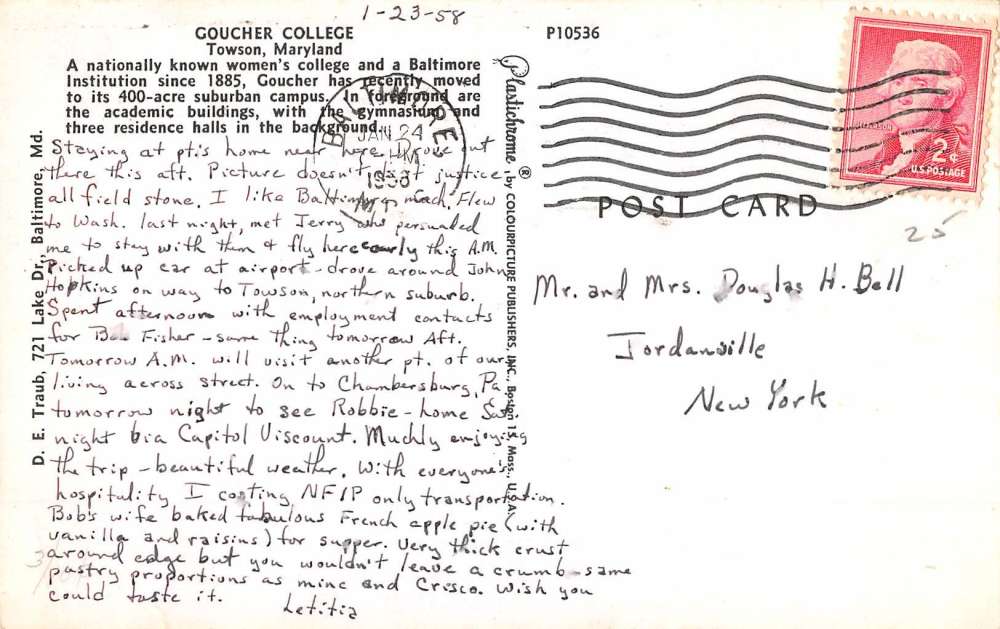 1-23-58
GOUCHER COLLEGE
Towson, Maryland
A nationally known women's college and a Baltimore
Institution since 1885, Goucher has recently moved
to its 400-acre suburban campus. In foreground are
the academic buildings, with the gymnasium and
three residence halls in the background.
P10536
BALTIMORE
JAN 24
1958
MD.
JEFFERSON
2¢
U.S. POSTAGE
Plastichrome ® by COLOURPICTURE PUBLISHERS, INC., Boston 15, Mass., U.S.A.
D. E. Traub, 721 Lake Dr., Baltimore, Md.
POST CARD
25
Staying at pt.'s home near here. Drove out
there this aft. Picture doesn't do it justice,
all field stone. I like Baltimore much. Flew
to Wash. last night, met Jerry who persuaded
me to stay with them & fly here early this A.M.
Picked up car at airport - drove around John
Hopkins on way to Towson, northern suburb.
Spent afternoon with employment contacts
for Bob Fisher - same thing tomorrow Aft.
Tomorrow A.M. will visit another pt. of ours
living across street. On to Chambersburg, Pa
tomorrow night to see Robbie - home Sat.
night bia Capitol Viscount. Muchly enjoying
the trip - beautiful weather. With everyone's
hospitality I costing NFIP only transportation.
Bob's wife baked fabulous French apple pie (with
vanilla and raisins) for supper. Very thick crust
around edge but you wouldn't leave a crumb - same
pastry proportions as mine and Crisco. Wish you
could taste it.
Letitia
Mr. and Mrs. Douglas H. Bell
Jordanville
New York